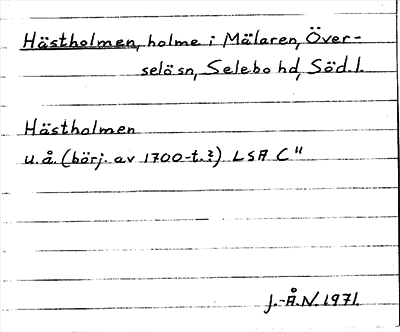 Hästholmen, holme i Mälaren, Över-
selö sn, Selebo hd, Söd. l.
Hästholmen
u.å. (börj. av 1700-t.?) LSA C"
J.-Å.N. 1971.